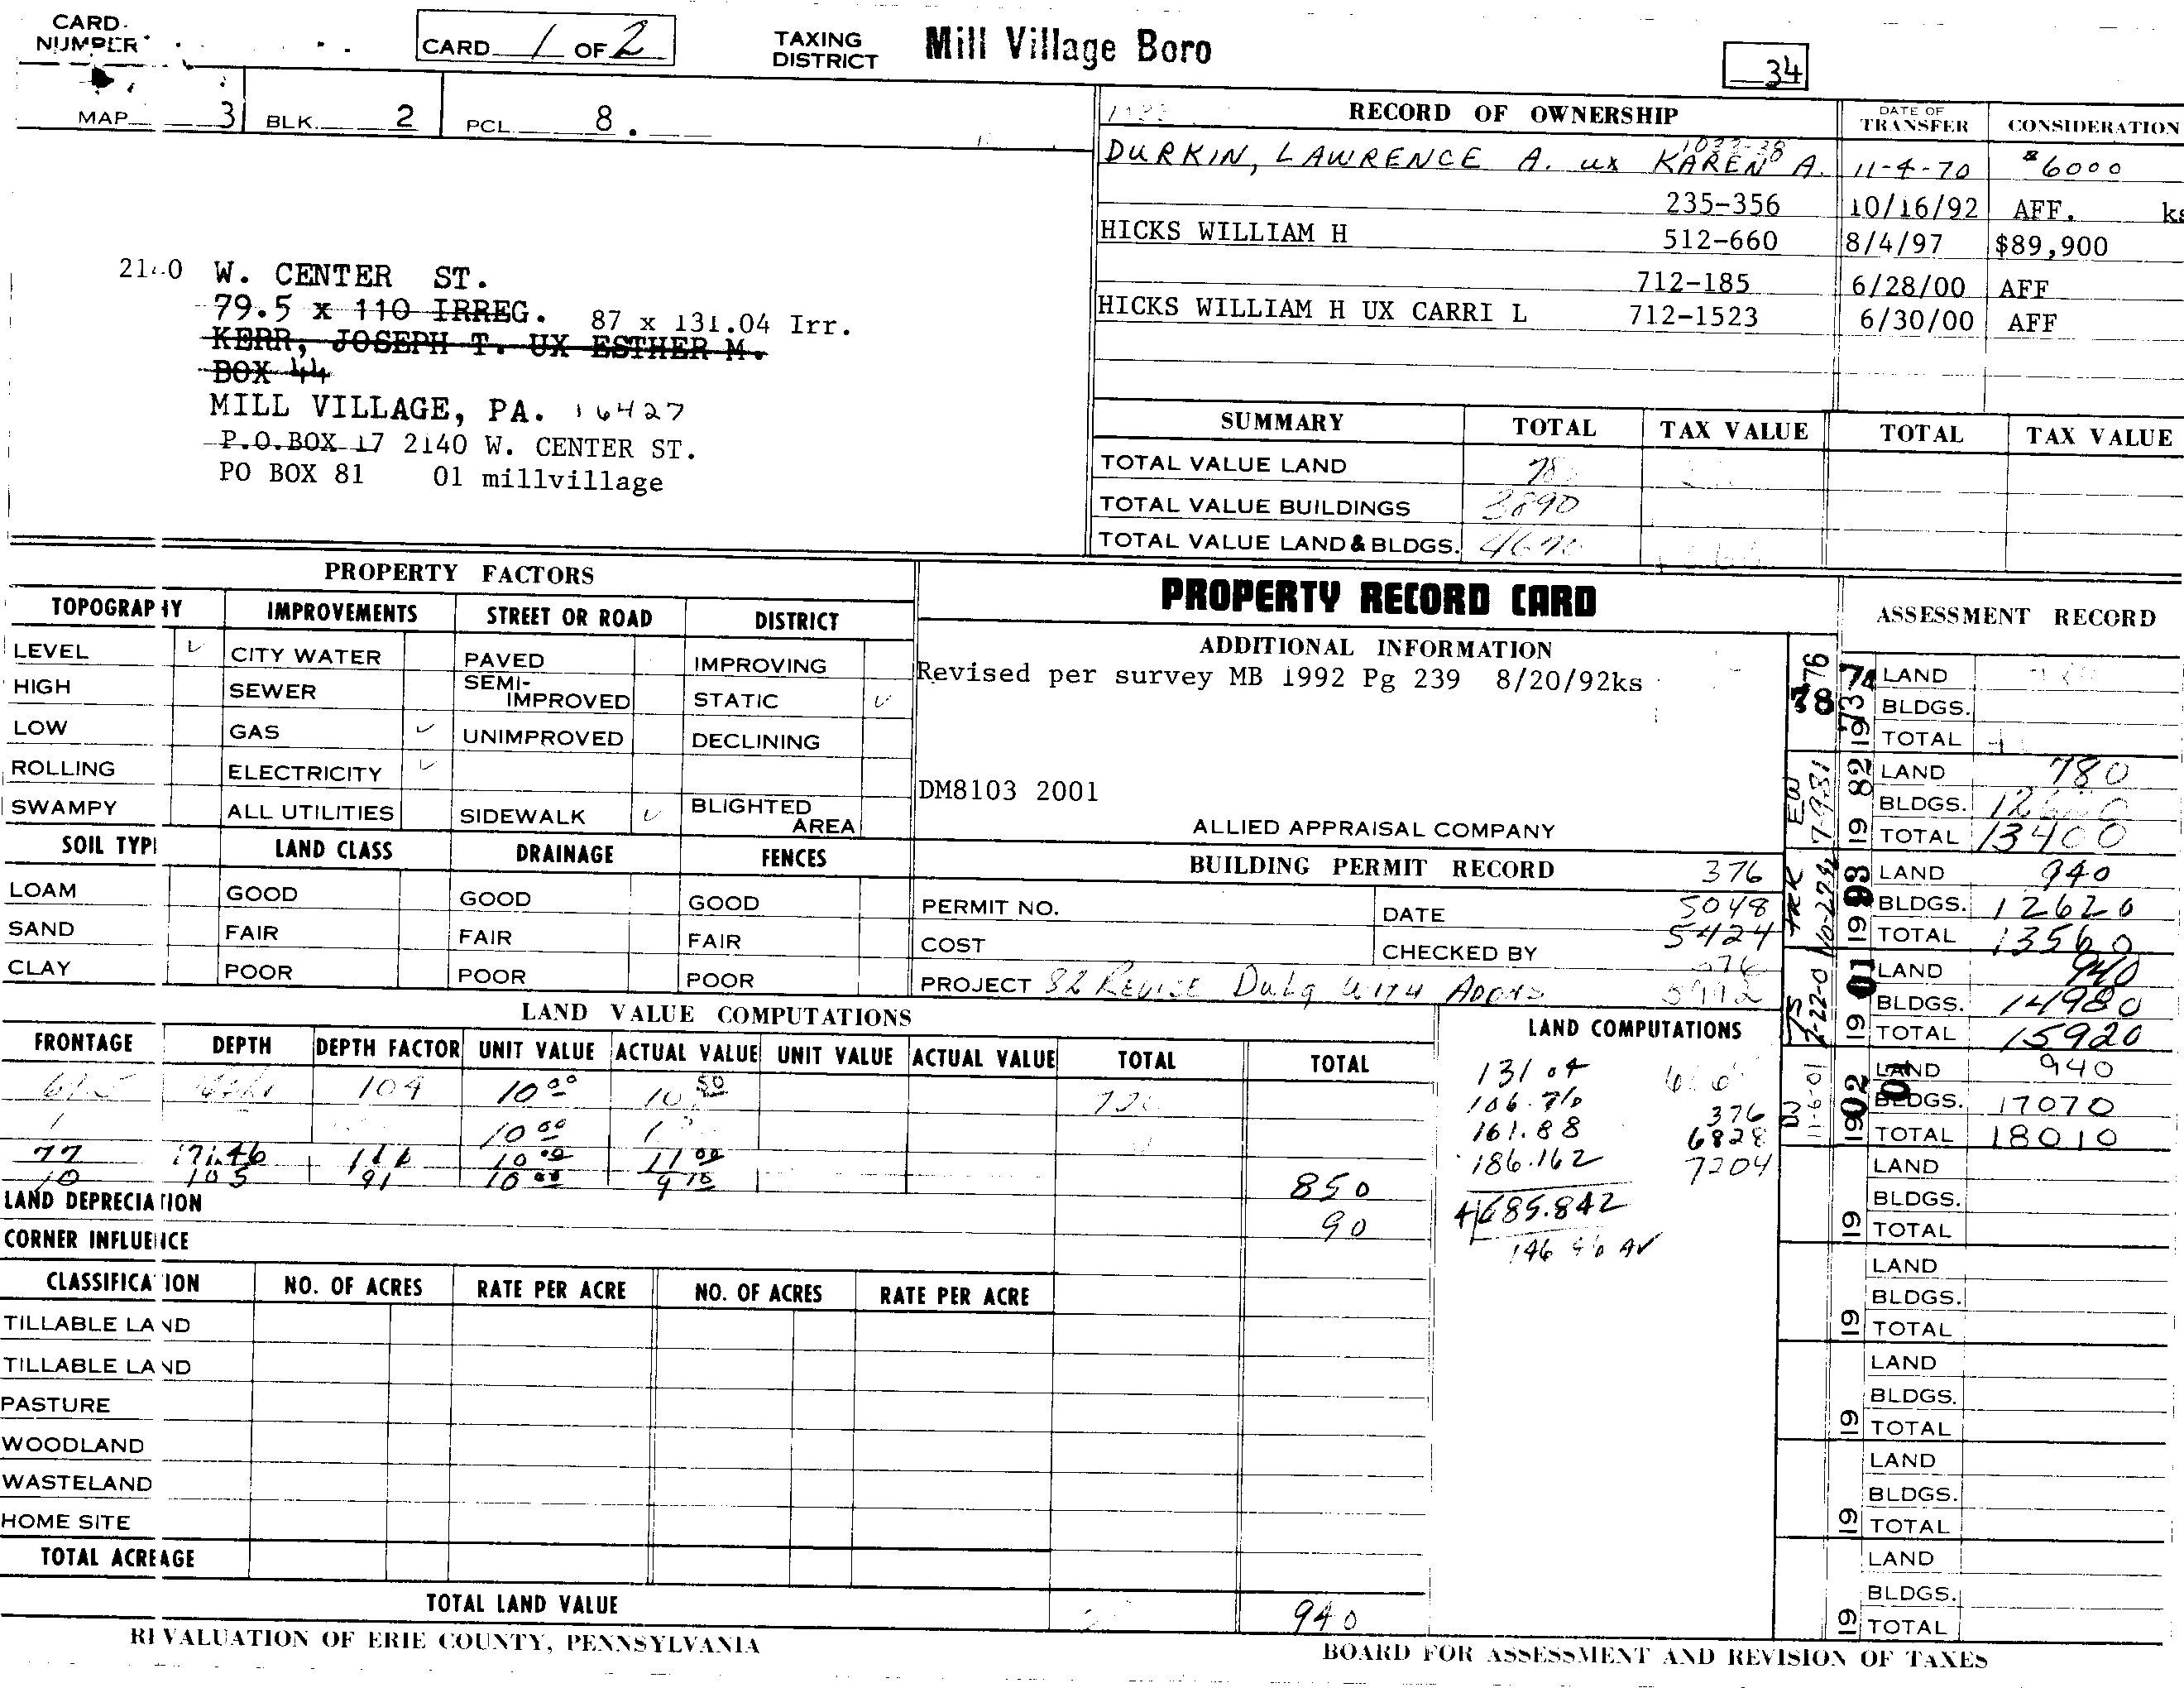 CARD NUMBER
CARD 1 OF 2
TAXING DISTRICT
Mill Village Boro
34
MAP 3 BLK. 2 PCL. 8 .
RECORD OF OWNERSHIP DATE OF TRANSFER CONSIDERATION
1037-38
DURKIN, LAWRENCE A. ux KAREN A. 11-4-70 $6000
235-356 10/16/92 AFF. ks
HICKS WILLIAM H 512-660 8/4/97 $89,900
712-185 6/28/00 AFF
HICKS WILLIAM H UX CARRI L 712-1523 6/30/00 AFF
2140 W. CENTER ST.
79.5 x 110 IRREG. 87 x 131.04 Irr.
KERR, JOSEPH T. UX ESTHER M.
BOX 44
MILL VILLAGE, PA. 16427
P.O.BOX 17 2140 W. CENTER ST.
PO BOX 81 01 millvillage
SUMMARY TOTAL TAX VALUE TOTAL TAX VALUE
TOTAL VALUE LAND
TOTAL VALUE BUILDINGS 3890
TOTAL VALUE LAND & BLDGS.
PROPERTY FACTORS
TOPOGRAPHY IMPROVEMENTS STREET OR ROAD DISTRICT
LEVEL ✓ CITY WATER PAVED IMPROVING
HIGH SEWER SEMI-IMPROVED STATIC ✓
LOW GAS ✓ UNIMPROVED DECLINING
ROLLING ELECTRICITY ✓
SWAMPY ALL UTILITIES SIDEWALK ✓ BLIGHTED AREA
SOIL TYPE LAND CLASS DRAINAGE FENCES
LOAM GOOD GOOD GOOD
SAND FAIR FAIR FAIR
CLAY POOR POOR POOR
PROPERTY RECORD CARD
ADDITIONAL INFORMATION
Revised per survey MB 1992 Pg 239 8/20/92ks
DM8103 2001
ALLIED APPRAISAL COMPANY
BUILDING PERMIT RECORD 376
PERMIT NO. DATE 5048
COST CHECKED BY 5424
PROJECT 82 REVISE Dwlg WITH ADDNS
ASSESSMENT RECORD
76 78
1973 74 LAND
BLDGS.
TOTAL
EW 7-9-81
19 82 LAND 780
BLDGS.
TOTAL 13400
19 93 LAND 940
BLDGS. 12620
TOTAL 13560
19 01 LAND 940
BLDGS. 14980
TOTAL 15920
11-6-01
1902 LAND 940
BLDGS. 17070
TOTAL 18010
LAND
BLDGS.
19 TOTAL
LAND
BLDGS.
19 TOTAL
LAND
BLDGS.
19 TOTAL
LAND
BLDGS.
19 TOTAL
LAND
BLDGS.
19 TOTAL
LAND VALUE COMPUTATIONS
FRONTAGE DEPTH DEPTH FACTOR UNIT VALUE ACTUAL VALUE UNIT VALUE ACTUAL VALUE TOTAL TOTAL
104 10 00 10 50
10 00
77 171.46 111 10 00 11 00 850
10 105 91 10 00 9 10 90
LAND DEPRECIATION
CORNER INFLUENCE
LAND COMPUTATIONS
131 04
106.76
161.88 376
186.162 6828
7204
4 685.842
146 46 AV
CLASSIFICATION NO. OF ACRES RATE PER ACRE NO. OF ACRES RATE PER ACRE
TILLABLE LAND
TILLABLE LAND
PASTURE
WOODLAND
WASTELAND
HOME SITE
TOTAL ACREAGE
TOTAL LAND VALUE 940
REVALUATION OF ERIE COUNTY, PENNSYLVANIA
BOARD FOR ASSESSMENT AND REVISION OF TAXES